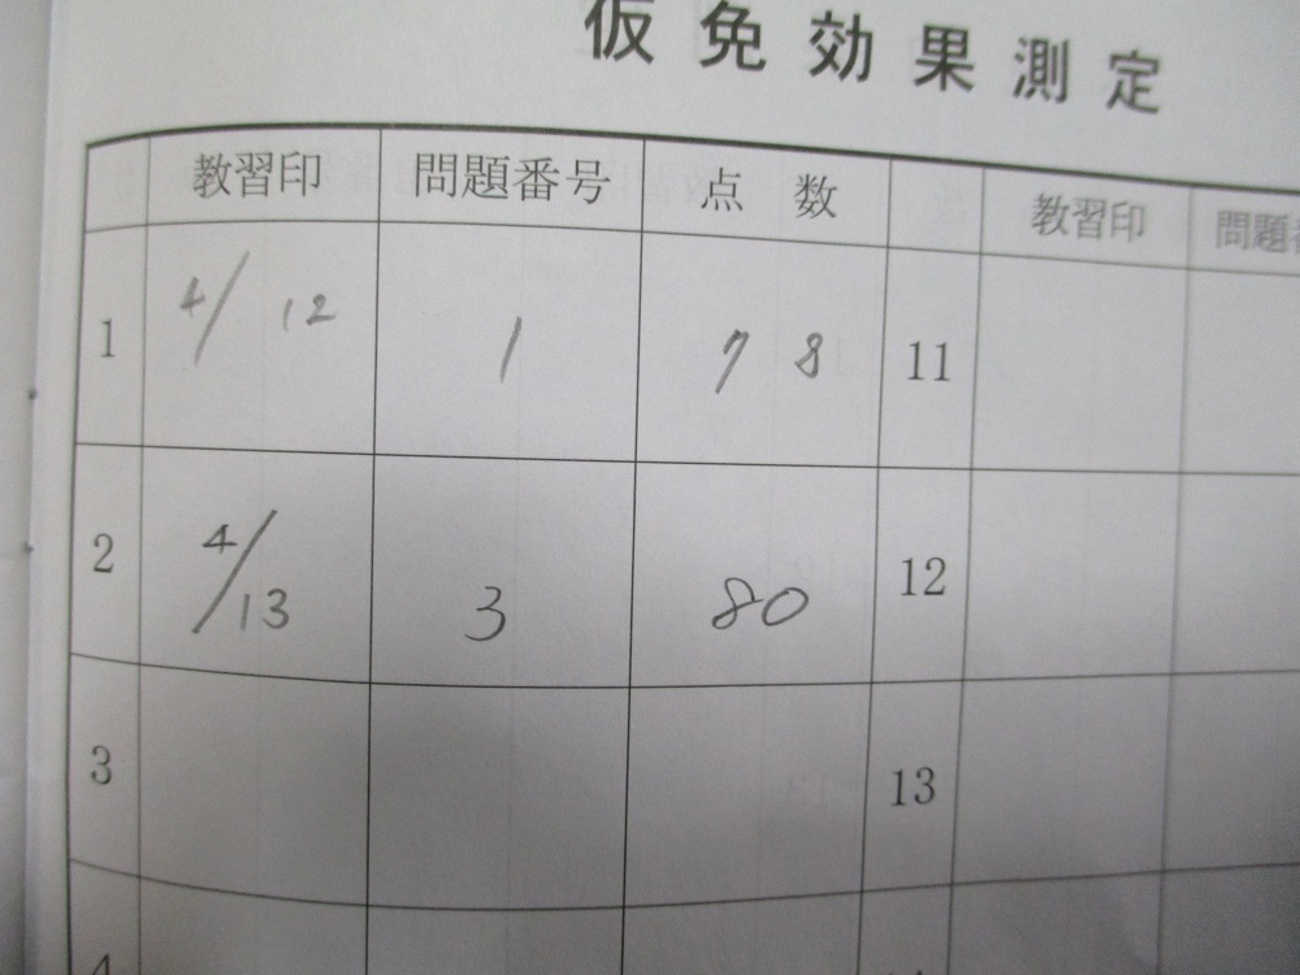 仮免効果測定
教習印 問題番号 点数 教習印 問題
1 4/12 1 78 11
2 4/13 3 80 12
3 13
4